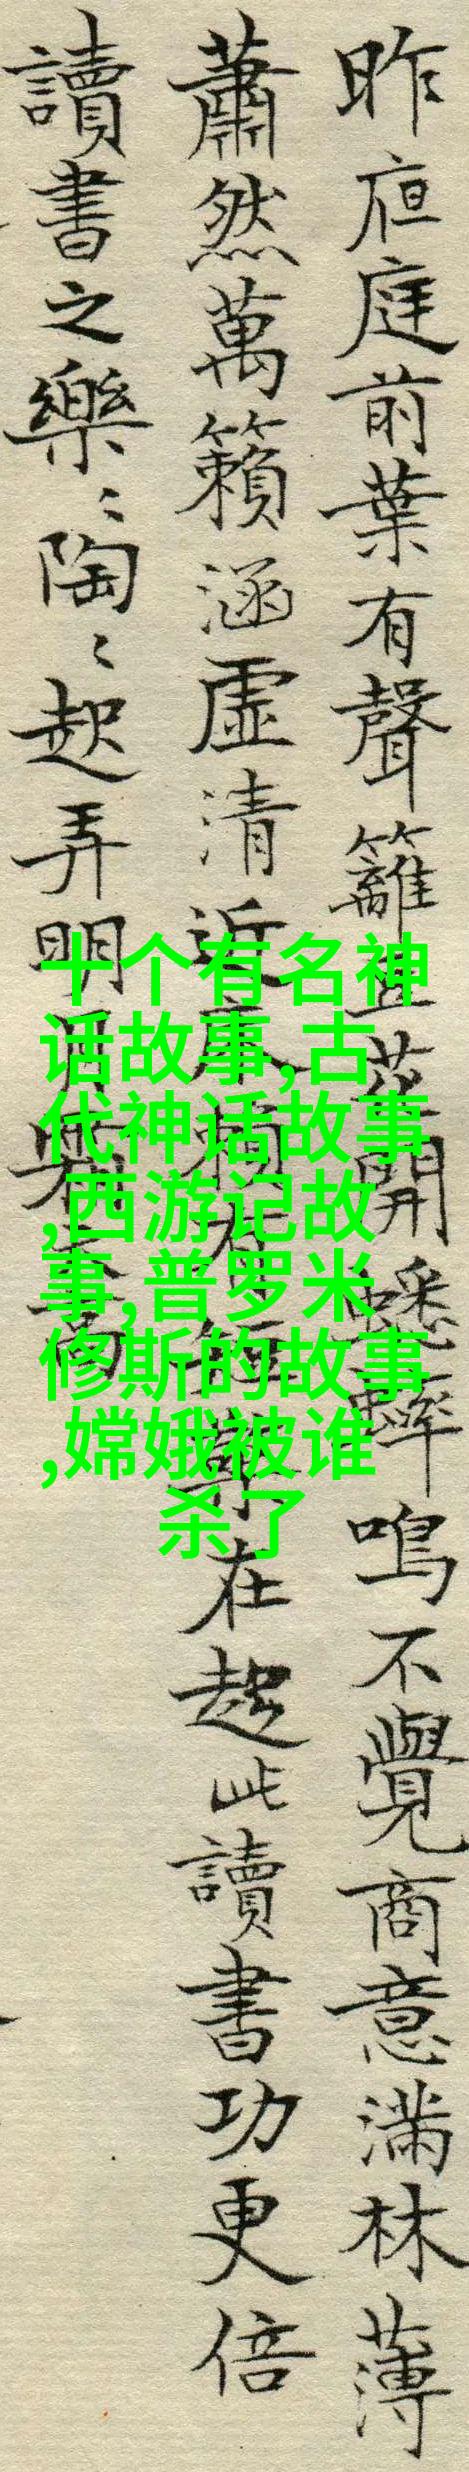 昨夜庭前葉有聲籬豆花開蟋蟀鳴不覺商意滿林薄
蕭然萬籟涵虛清近床賴有短檠在此讀書功更倍
讀書之樂〻陶〻起弄明月霜天高
十个有名神
话故事,古
代神话故事
,西游记故
事,普罗米
修斯的故事
,嫦娥被谁
杀了